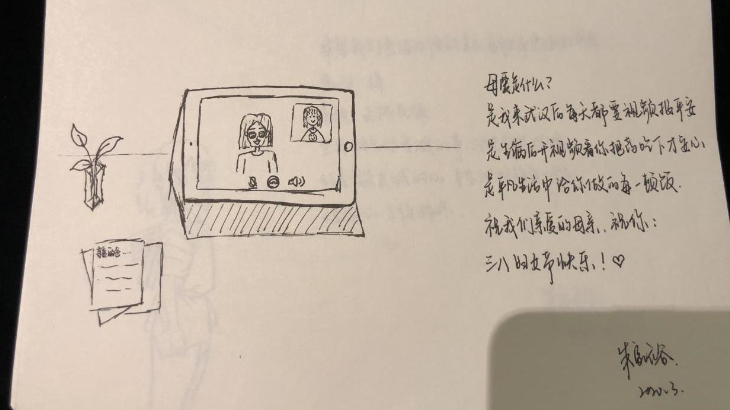 母爱是什么?
是我来武汉后每天都要视频报平安
是生病后开视频看你把药吃下才安心
是平凡生活中给你做的每一顿饭.
祝我们亲爱的母亲、祝你:
三八妇女节快乐!♡
2020.3.